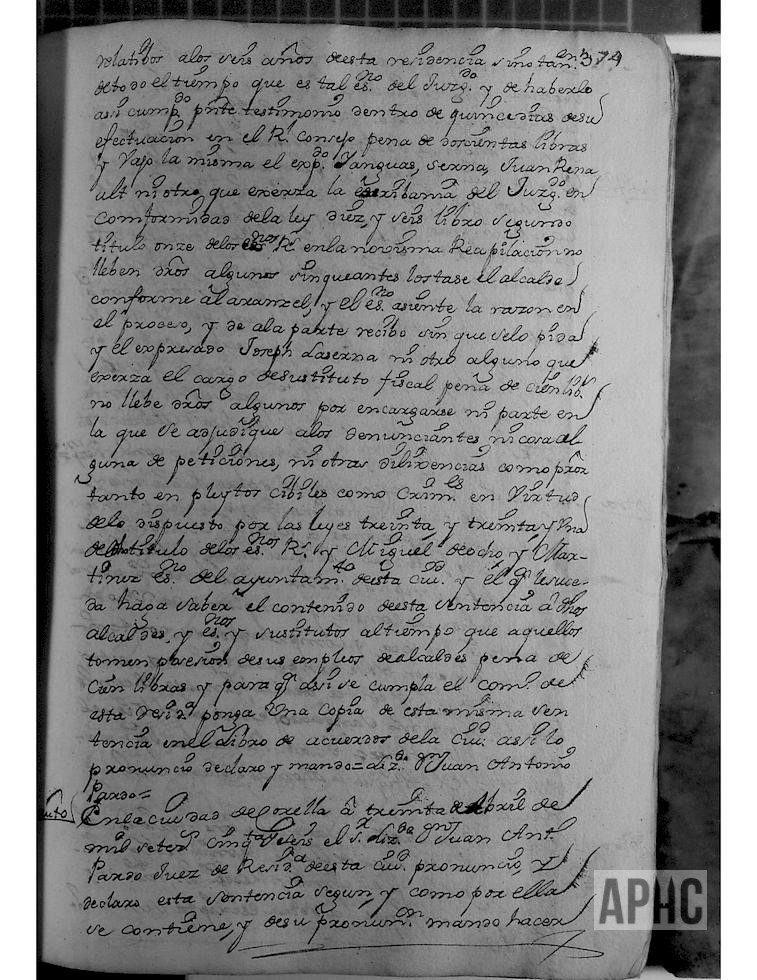 374
relatibos alos seis años deesta residencia sino tan en
detodo el tiempo que es tal es.no del Juzg.do y de haberlo
asi cump.do pnte testimonio dentro de quince dias desu
efectuacion en el R.l Consejo pena de doscientas libras
y vajo la misma el exp.do Yanguas, Serna, Juan Rena
ult ni otro que exerza la escribania del Juzg.do en
comformidad dela ley diez, y seis libro segundo
titulo onze delos es.nos R.s enla novisima Recapilacion no
lleben dros algunos sin que antes los tase el alcalde
conforme al aranzel, y el es.no asiente la razon en
el proceso, y de ala parte recibo sin que selo pida
y el expresado Joseph Laserna ni otro alguno que
exerza el cargo desustituto fiscal pena de cien lib.s
no llebe dros algunos por encargarse ni parte en
la que se adjudique alos denunciantes ni cosa al
guna de peticiones, ni otras dilixencias como pror
tanto en pleytos cibiles como Crim.les en Virtud
delo dispuesto por las leyes treinta y treinta y Una
del titulo delos es.nos R.s y Miguel deocho y Mar-
tinez es.no del ayuntam.to deesta ciu.d y el q.e lesuce-
da haga saber el contenido deesta sentencia a dhos
alcaldes, y es.nos y sustitutos altiempo que aquellos
tomen posesion desus empleos dealcaldes pena de
cien libras y para q.e asi se cumpla el com.o de
esta resid.a ponga Una Copia de esta misma sen
tencia enel libro de acuerdos dela ciu.d assi lo
pronuncio declaro y mando= liz.do Dn Juan Antonio
Pardo=
Auto Enla ciudad deCorella a treinta de Abril de
mil setez.s cinq.ta y seis el s.r liz.do Dn Juan Ant.o
Pardo Juez de Resid.a deesta ciu.d pronuncio y
declaro esta sentencia segun, y como por ella
se contiene, y desu pronun.on mando hacer
APHC